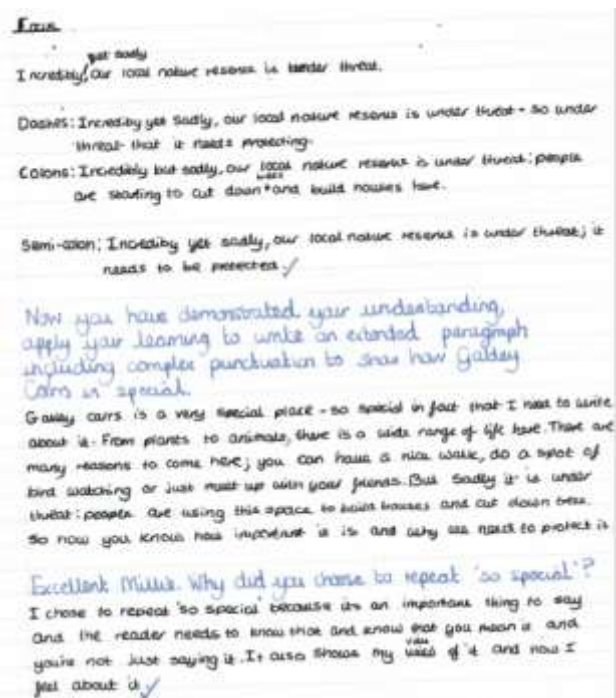 Focus
yet sadly
Incredibly, our local nature reserve is under threat.
Dashes: Incrediby yet sadly, our local nature reserve is under threat - so under
threat - that it needs protecting.
Colons: Incredibly but sadly, our local nature reserve is under threat: people
trees
are starting to cut down + and build houses here.
Semi-colon; Incrediby yet sadly, our local nature reserve is under threat; it
needs to be protected ✓
Now you have demonstrated your understanding,
apply your learning to write an extended paragraph
including complex punctuation to show how Gaddey
Carrs is special.
carrs is a very special place - so special in fact that I need to write
about it. From plants to animals, there is a wide range of life here. There are
many reasons to come here; you can have a nice walk, do a spot of
bird watching or just meet up with your friends. But sadly it is under
threat: people are using this space to build houses and cut down trees.
So now you know how important it is and why we need to protect it
Excellent Millie. Why did you choose to repeat 'so special'?
I chose to repeat 'so special' because its an important thing to say
and the reader needs to know that and know that you mean it and
you're not just saying it. It also shows my view of it and how I
feel about it ✓